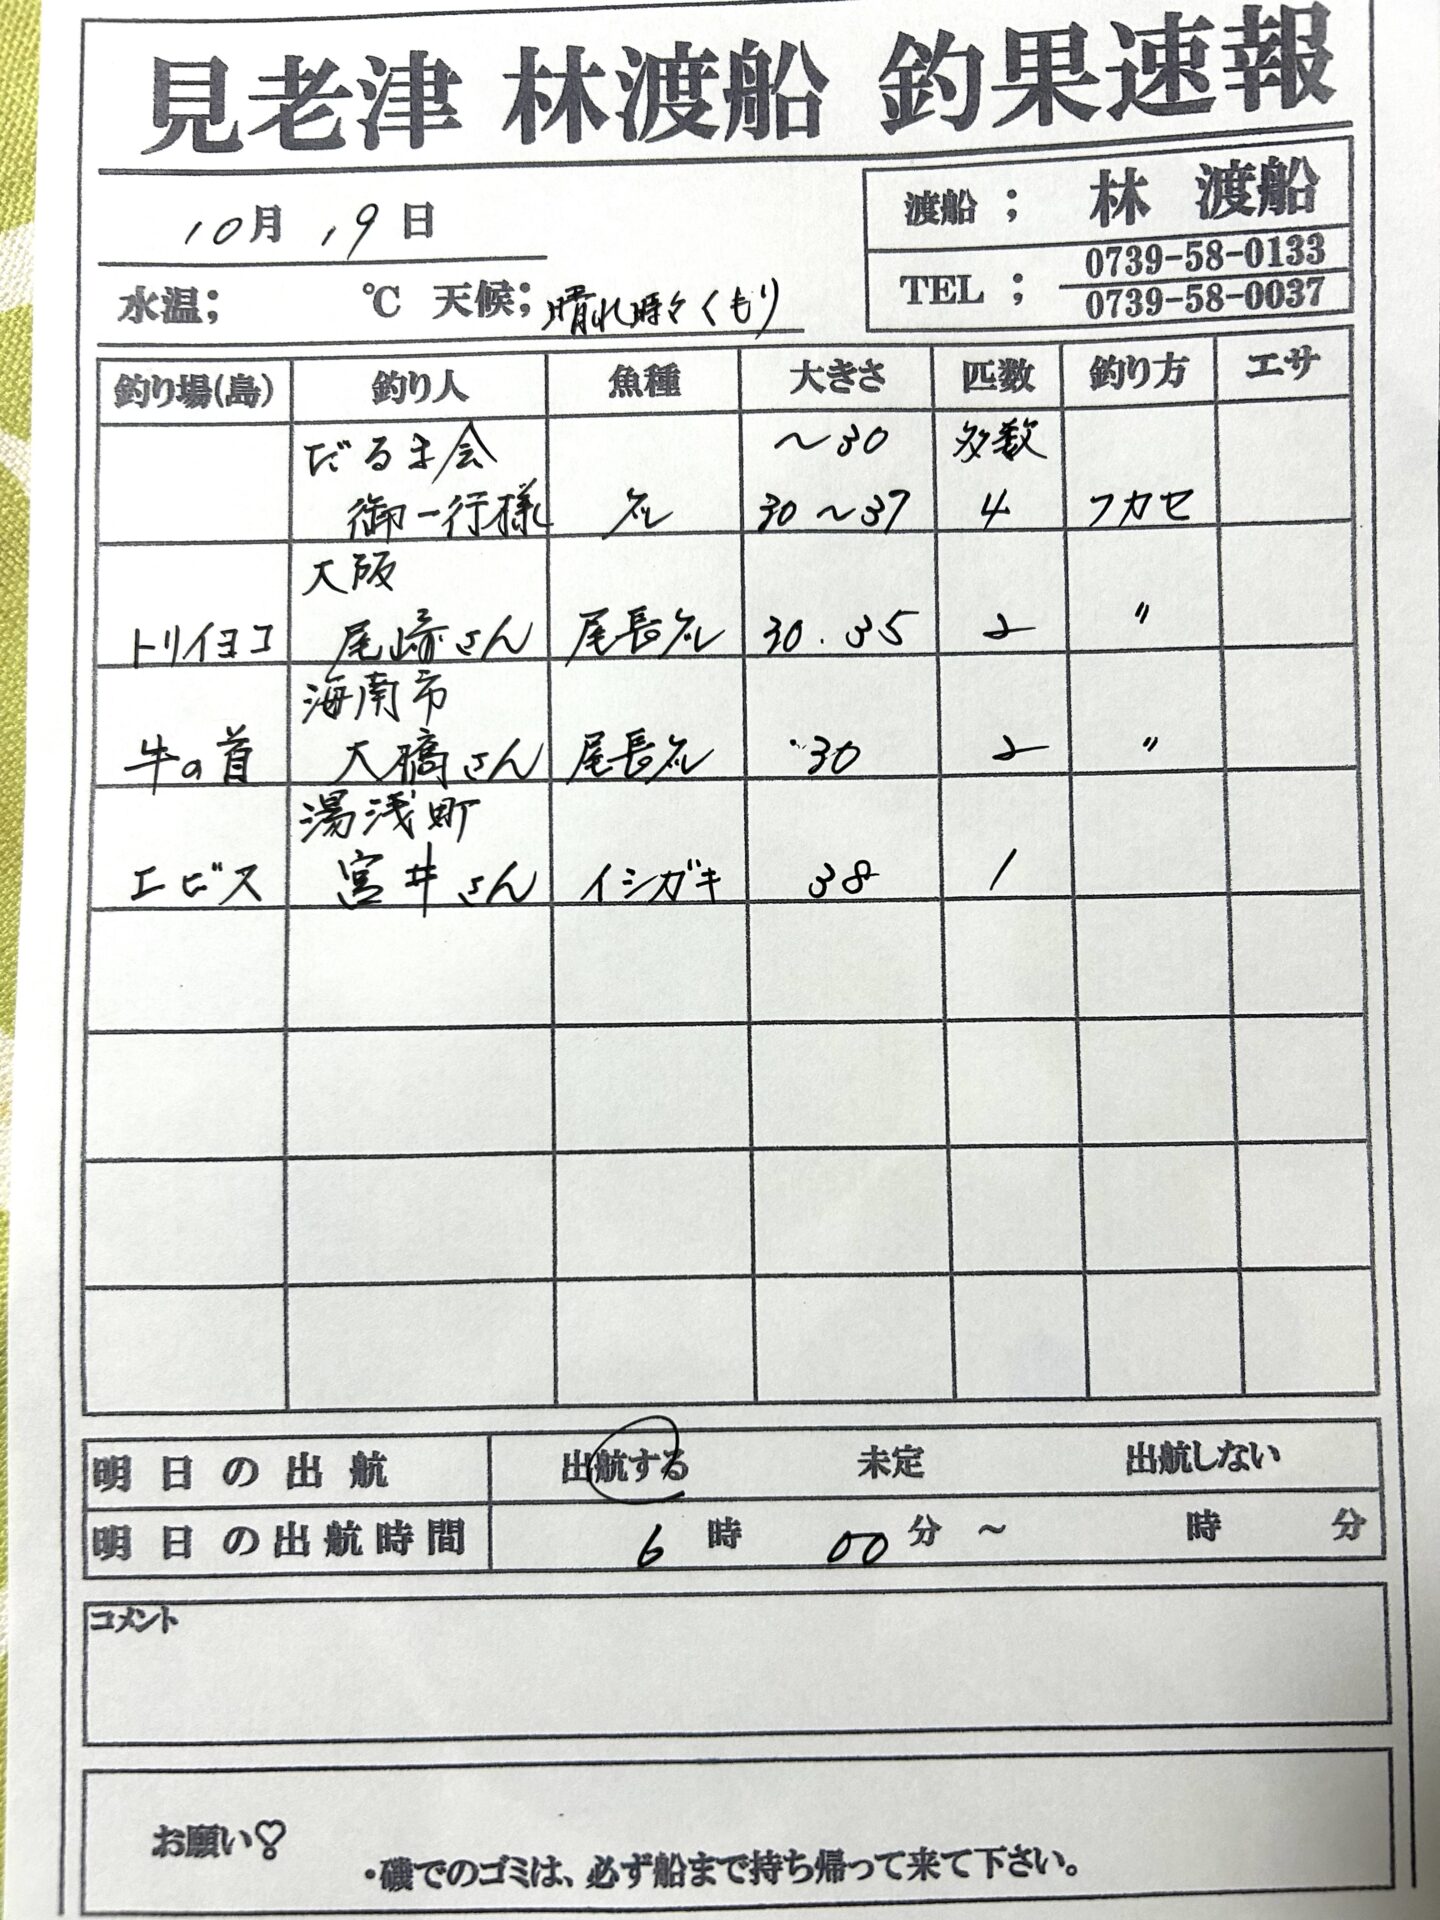 見老津 林渡船 釣果速報
10月 19日
渡船 ; 林 渡船
水温; ℃ 天候; 晴れ時々くもり
TEL ; 0739-58-0133
0739-58-0037
釣り場(島) 釣り人 魚種 大きさ 匹数 釣り方 エサ
だるま会 ～30 多数
御一行様 グレ 30～37 4 フカセ
大阪
トリイヨコ 尾崎さん 尾長グレ 30.35 2 〃
海南市
牛の首 大橋さん 尾長グレ 30 2 〃
湯浅町
エビス 宮井さん イシガキ 38 1
明日の出航 出航する 未定 出航しない
明日の出航時間 6 時 00 分 ～ 時 分
コメント
お願い♡
・磯でのゴミは、必ず船まで持ち帰って来て下さい。